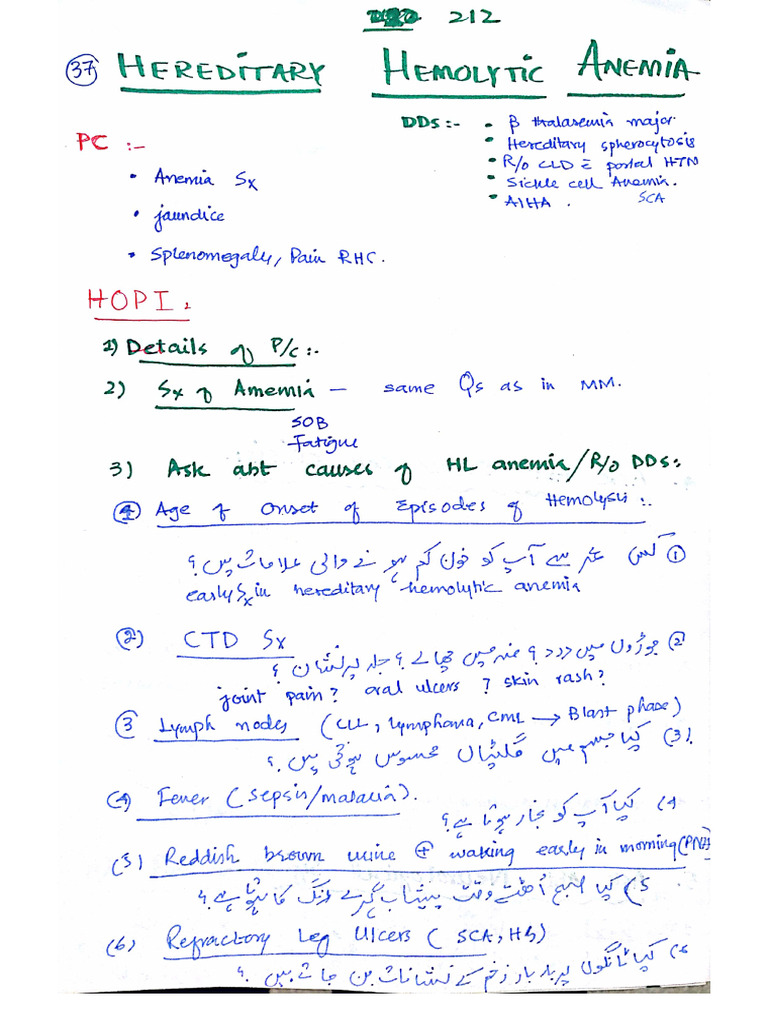 212
37 HEREDITARY HEMOLYTIC ANEMIA
DDs:- • β thalasemia major.
• Hereditary spherocytosis
• R/o CLD c̄ portal HTN
• Sickle cell Anemia.
SCA
• AIHA.
PC :-
• Anemia Sx
• jaundice
• Splenomegaly, Pain RHC.
HOPI:
1) Details of P/C:-
2) Sx of Anemia — same Qs as in MM.
SOB
Fatigue
3) Ask abt causes of HL anemia/R/o DDs:
① Age of onset of Episodes of Hemolysis:.
① کس عمر سے آپ کو خون کم ہونے والی علامات ہیں؟
early Sx in hereditary hemolytic anemia
(2) CTD Sx
② جوڑوں میں درد؟ منہ میں چھالے؟ جلد پر نشان؟
joint pain? oral ulcers? skin rash?
③ Lymph nodes (CLL, lymphoma, CML → Blast phase)
(3) کیا جسم میں گلٹیاں محسوس ہوتی ہیں؟
(4) Fever (sepsis/malaria).
4) کیا آپ کو بخار ہوتا ہے؟
(5) Reddish brown urine ⊕ waking early in morning (PNH)
5) کیا صبح اُٹھتے وقت پیشاب گہرے رنگ کا ہوتا ہے؟
(6) Refractory Leg Ulcers (SCA, HS)
6) کیا ٹانگوں پر بار بار زخم کے نشانات بن جاتے ہیں؟